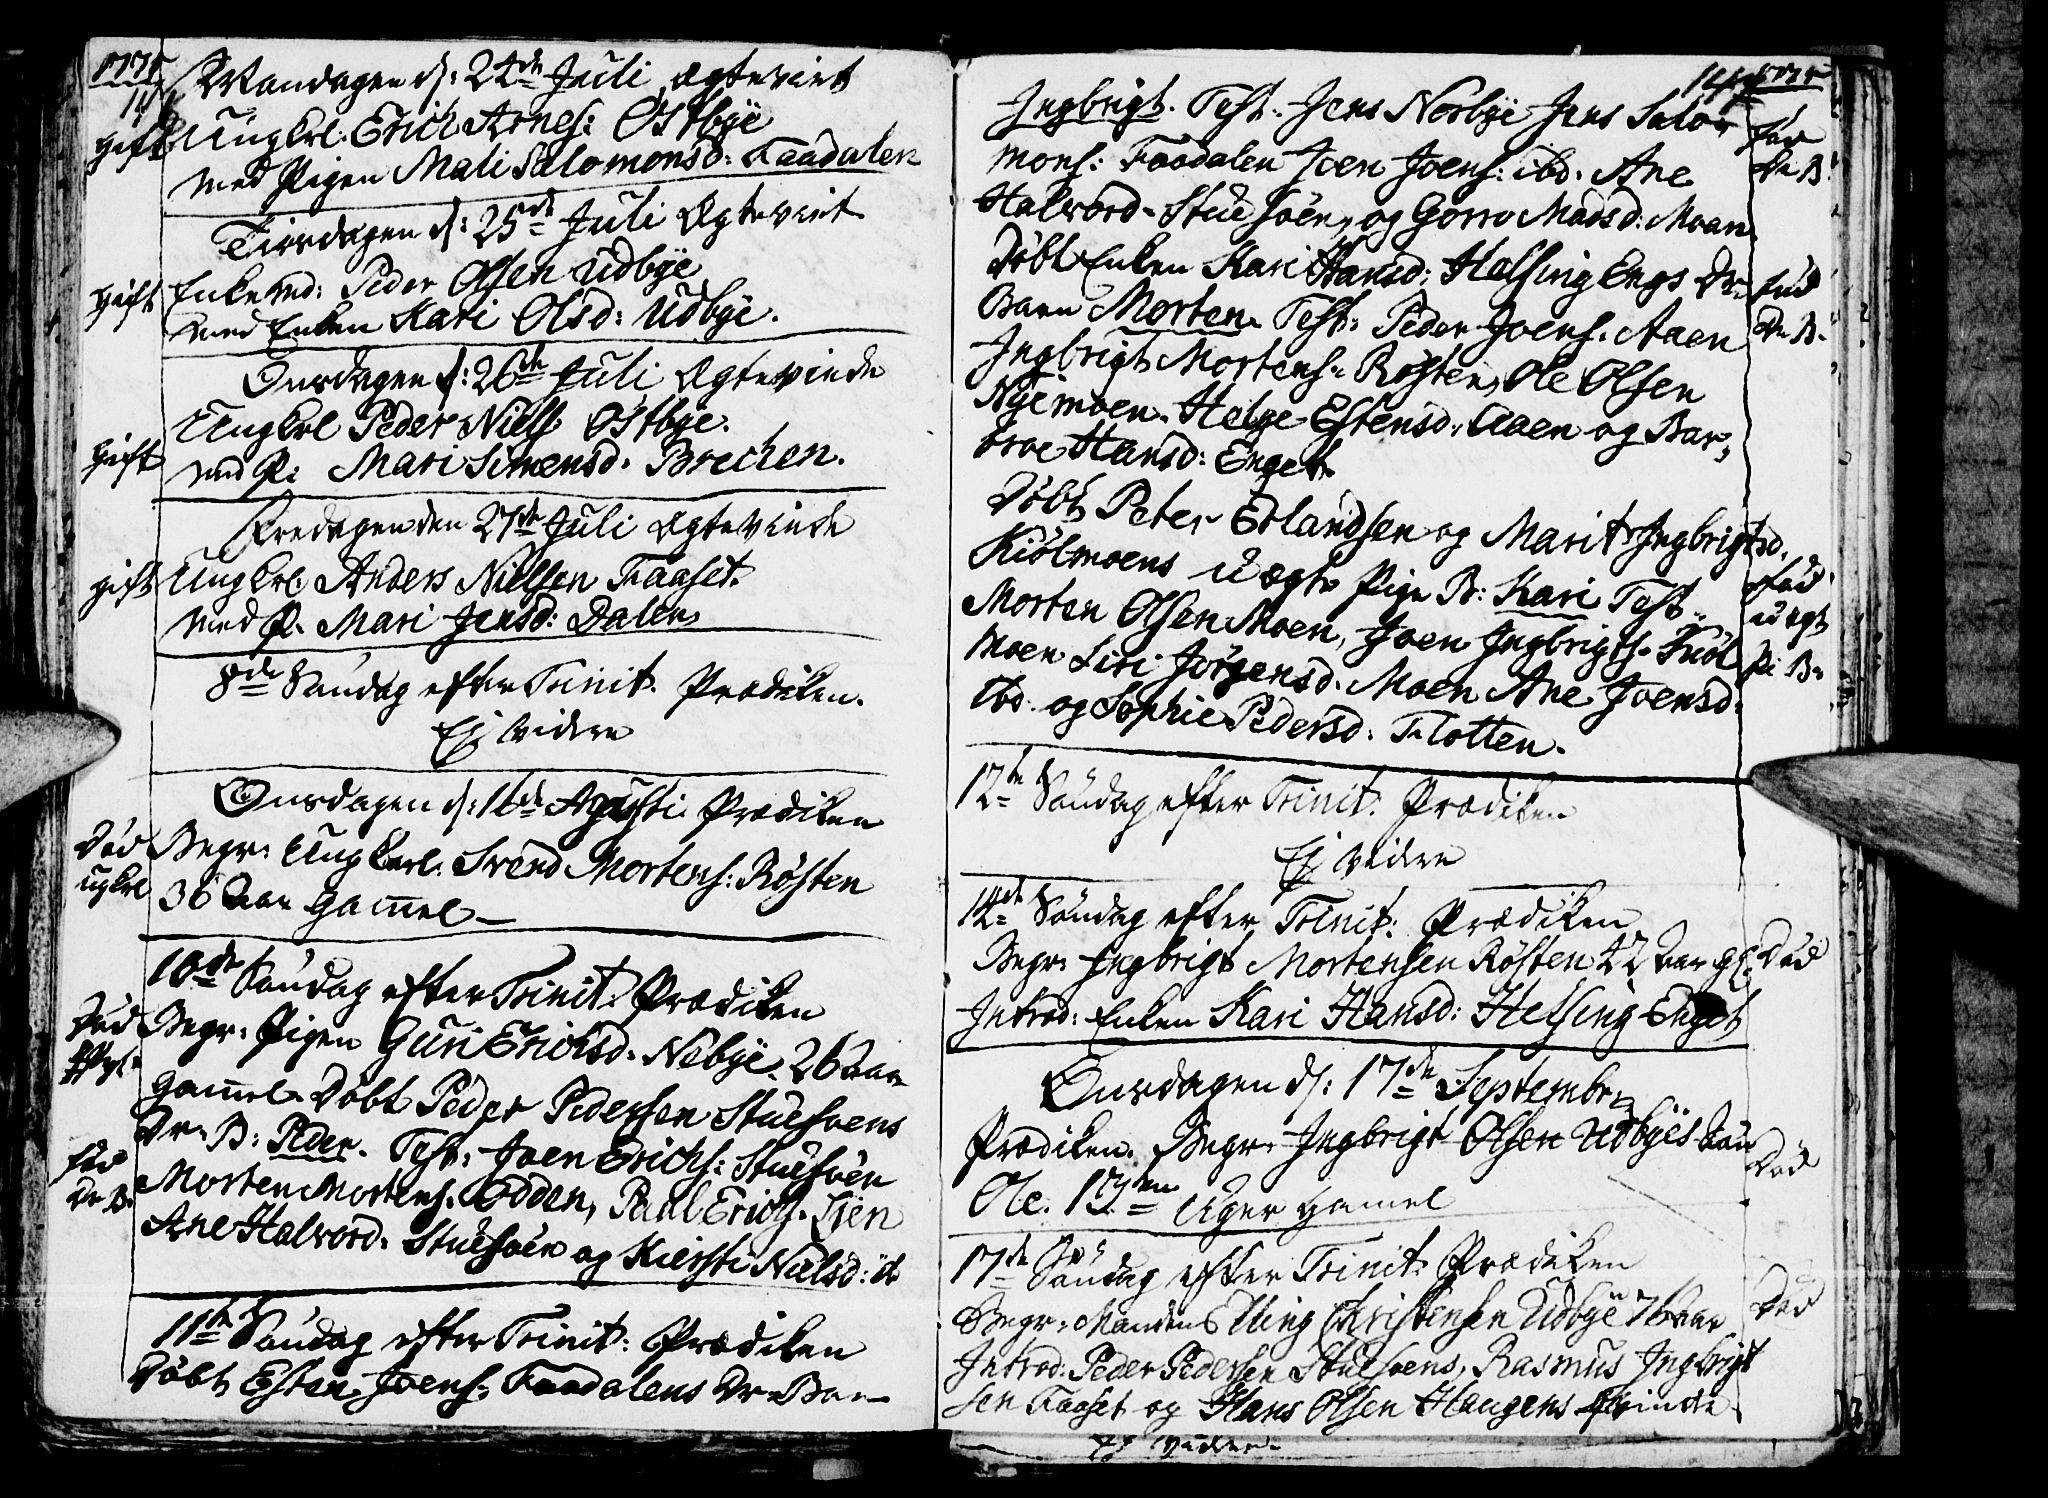 1775
Mandagen d: 24de Juli Ægteviet
gift
Ungkrl: Erich Arnes: Östbÿe
med Pigen Mali Salomonsd: Faadalen
Tirsdagen d: 25de Juli Ægteviet
gift
Enkemd: Peder Olsen Udbÿe
med Enken Kari Olsd: Udbÿe.
Onsdagen d: 26de Juli Ægteviede
gift
Ungkrl Peder Niels: Östbÿe.
med Pi: Mari Simensd: Brechen.
Fredagen den 27de Juli Ægteviede
gift
Ungkrl: Anders Nielsen Faaset.
med P. Mari Jensd: Dalen
8de Sündag efter Trinit. Prædiken.
Ej videre
Onsdagen d: 16de Augusti Prædiken
Död ugkrl
Begr: Ungkarl: Svend Mortens: Rösten
36 Aar gamel
10de Sündag efter Trinit: Prædiken
Död
Begr: Pigen Guri Erichsd: Nebÿe. 26 Aar
gamel. Döbt Peder Pedersen Stuesöens
Dr: B: Peder. Test: Joen Erichs: Stuesöen
föd Dr B:
Morten Mortens. Odden, Paul Erichs.
Ane Halvord: Stuesöen og Kiersti Nielsd:
11te Sündag efter Trinit: Prædiken
Döbt Esten Joens: Faadalens Dr: Bar
1775
Ingbrigt. Test. Jens Norbÿe Jens Salo-
mons: Faadalen Joen Joens: ibd. Ane
föd Dr B:
Halvord: Stuesöen, og Gorro Madsd: Moan
Döbt Enken Kari Hansd: Helsing Engs Dr:
föd
Barn Morten. Test: Peder Joens. Aaen
Dr B.
Ingbrigt Mortens: Rösten, Ole Olsen
Nÿemoen. Helge Estensd: Aaen og Bar-
broe Hansd: Enget.
Döbt Peter Erlandsen og Marit Ingbrigtsd.
Kiölmoens uægte Pige B: Kari Test.
föd uegt Pi B:
Morten Olsen Moen, Joen Ingbrigts. Kiöl
Moen Siri Jörgensd. Moen Ane Joensd:
ibd. og Sophie Pedersd: Flotten.
12te Söndag efter Trinit. Prædiken
Ej videre
14de Söndag efter Trinit: Prædiken
Begr: Ingbrigt Mortensen Rösten 22 Aar gl:
Död
Introd: Enken Kari Hansd: Helsing Enget
Onsdagen d: 17de September
Prædiken. Begr: Ingbrigt Olsen Udbÿes
Död
Ole. 13ten Uger gamel
17de Söndag efter Trinit: Prædiken
Begr: Manden Elling Christensen Udbÿe 76 Aar
Död
Introd: Peder Pedersen Stuesöens, Rasmus Ingbrigt
sen Faaset og Hans Olsen Haugens qvinde
Ej videre